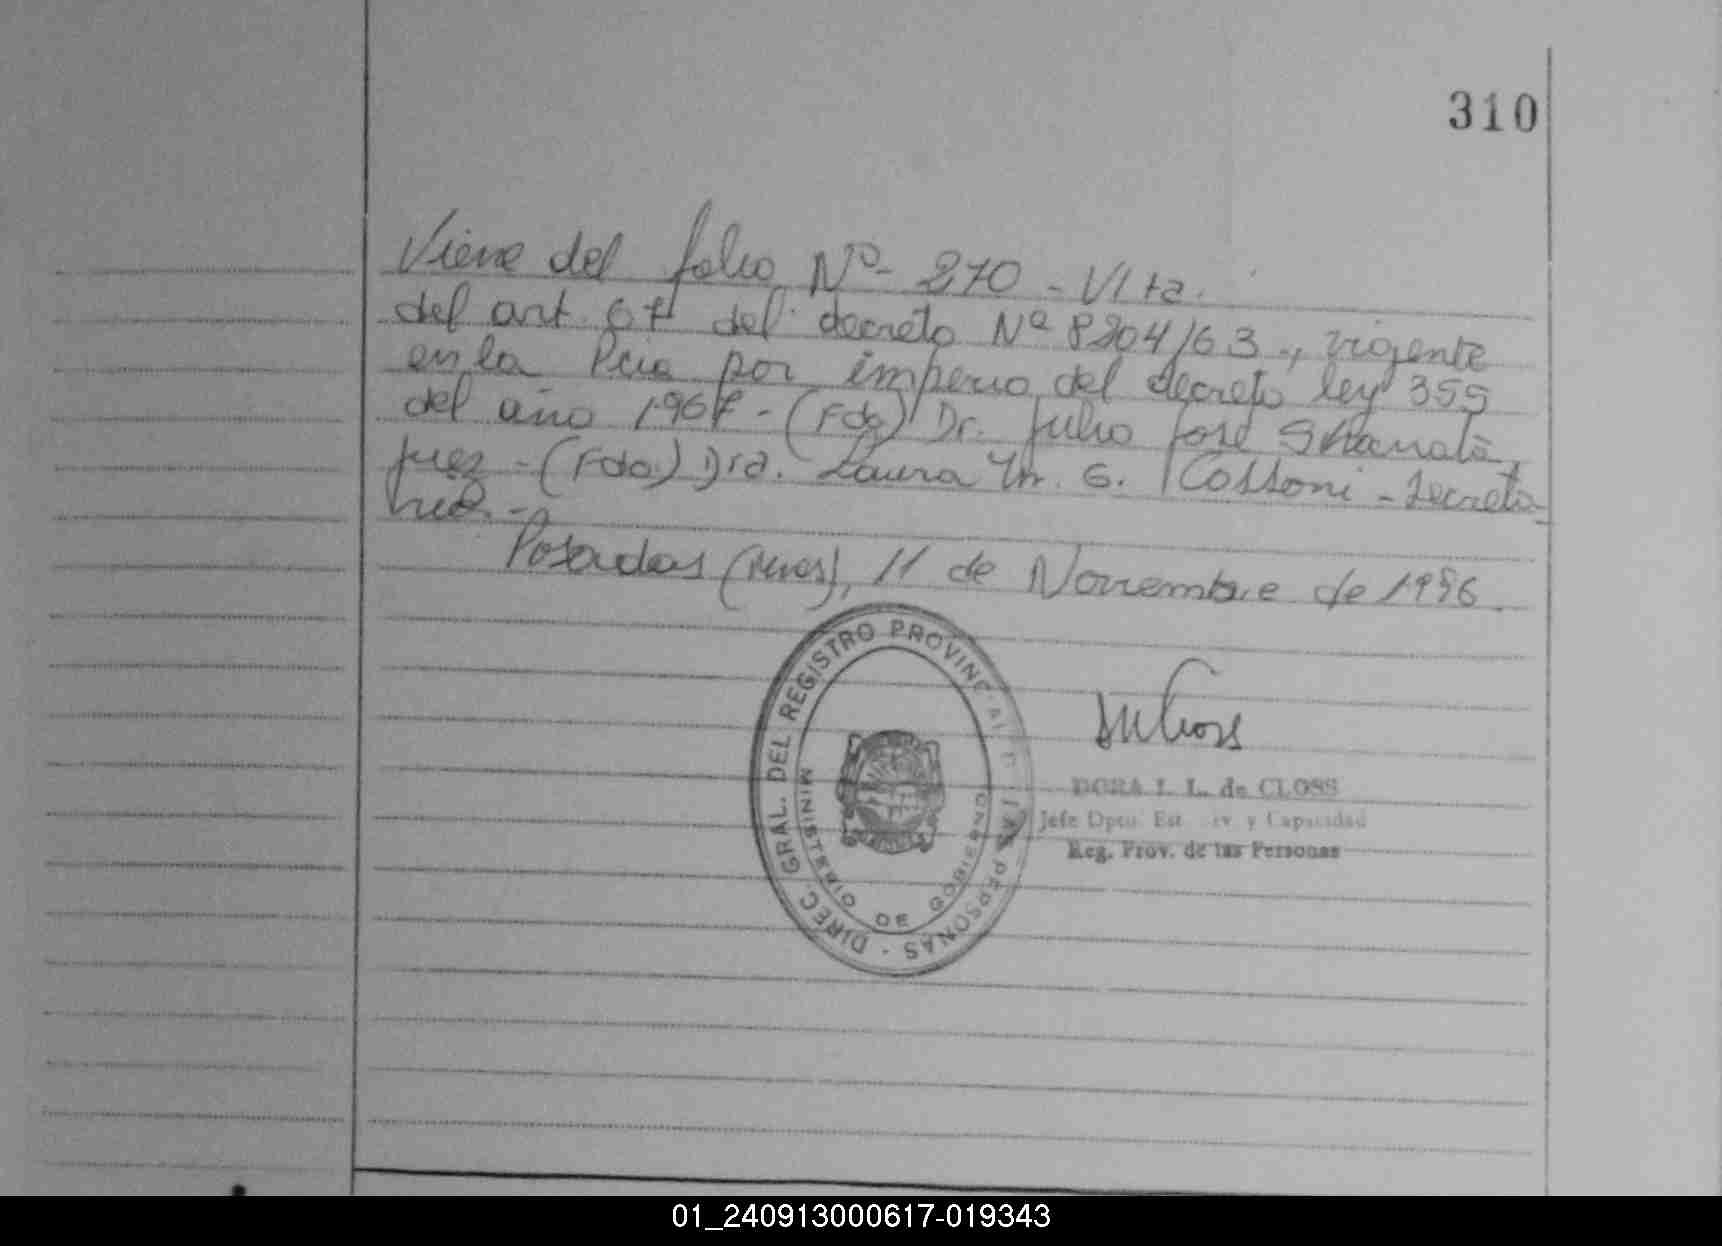 310
Viene del folio Nº- 270 - Vlta.
del art. 67 del decreto Nº 8204/63., vigente
en la Pcia por imperio del decreto ley 359
del año 1.967 - (Fdo) Dr. Julio José
Juez - (Fdo.) Dra. Laura M. G. Cossoni - Secreta
ria.-
Posadas (Mnes), 11 de Noviembre de 1996.
DIREC. GRAL. DEL REGISTRO PROVINCIAL DE LAS PERSONAS -
MINISTERIO DE GOBIERNO
DORA I. L. de CLOSS
Jefe Dpto. Est. Civ. y Capacidad
Reg. Prov. de las Personas
01_240913000617-019343